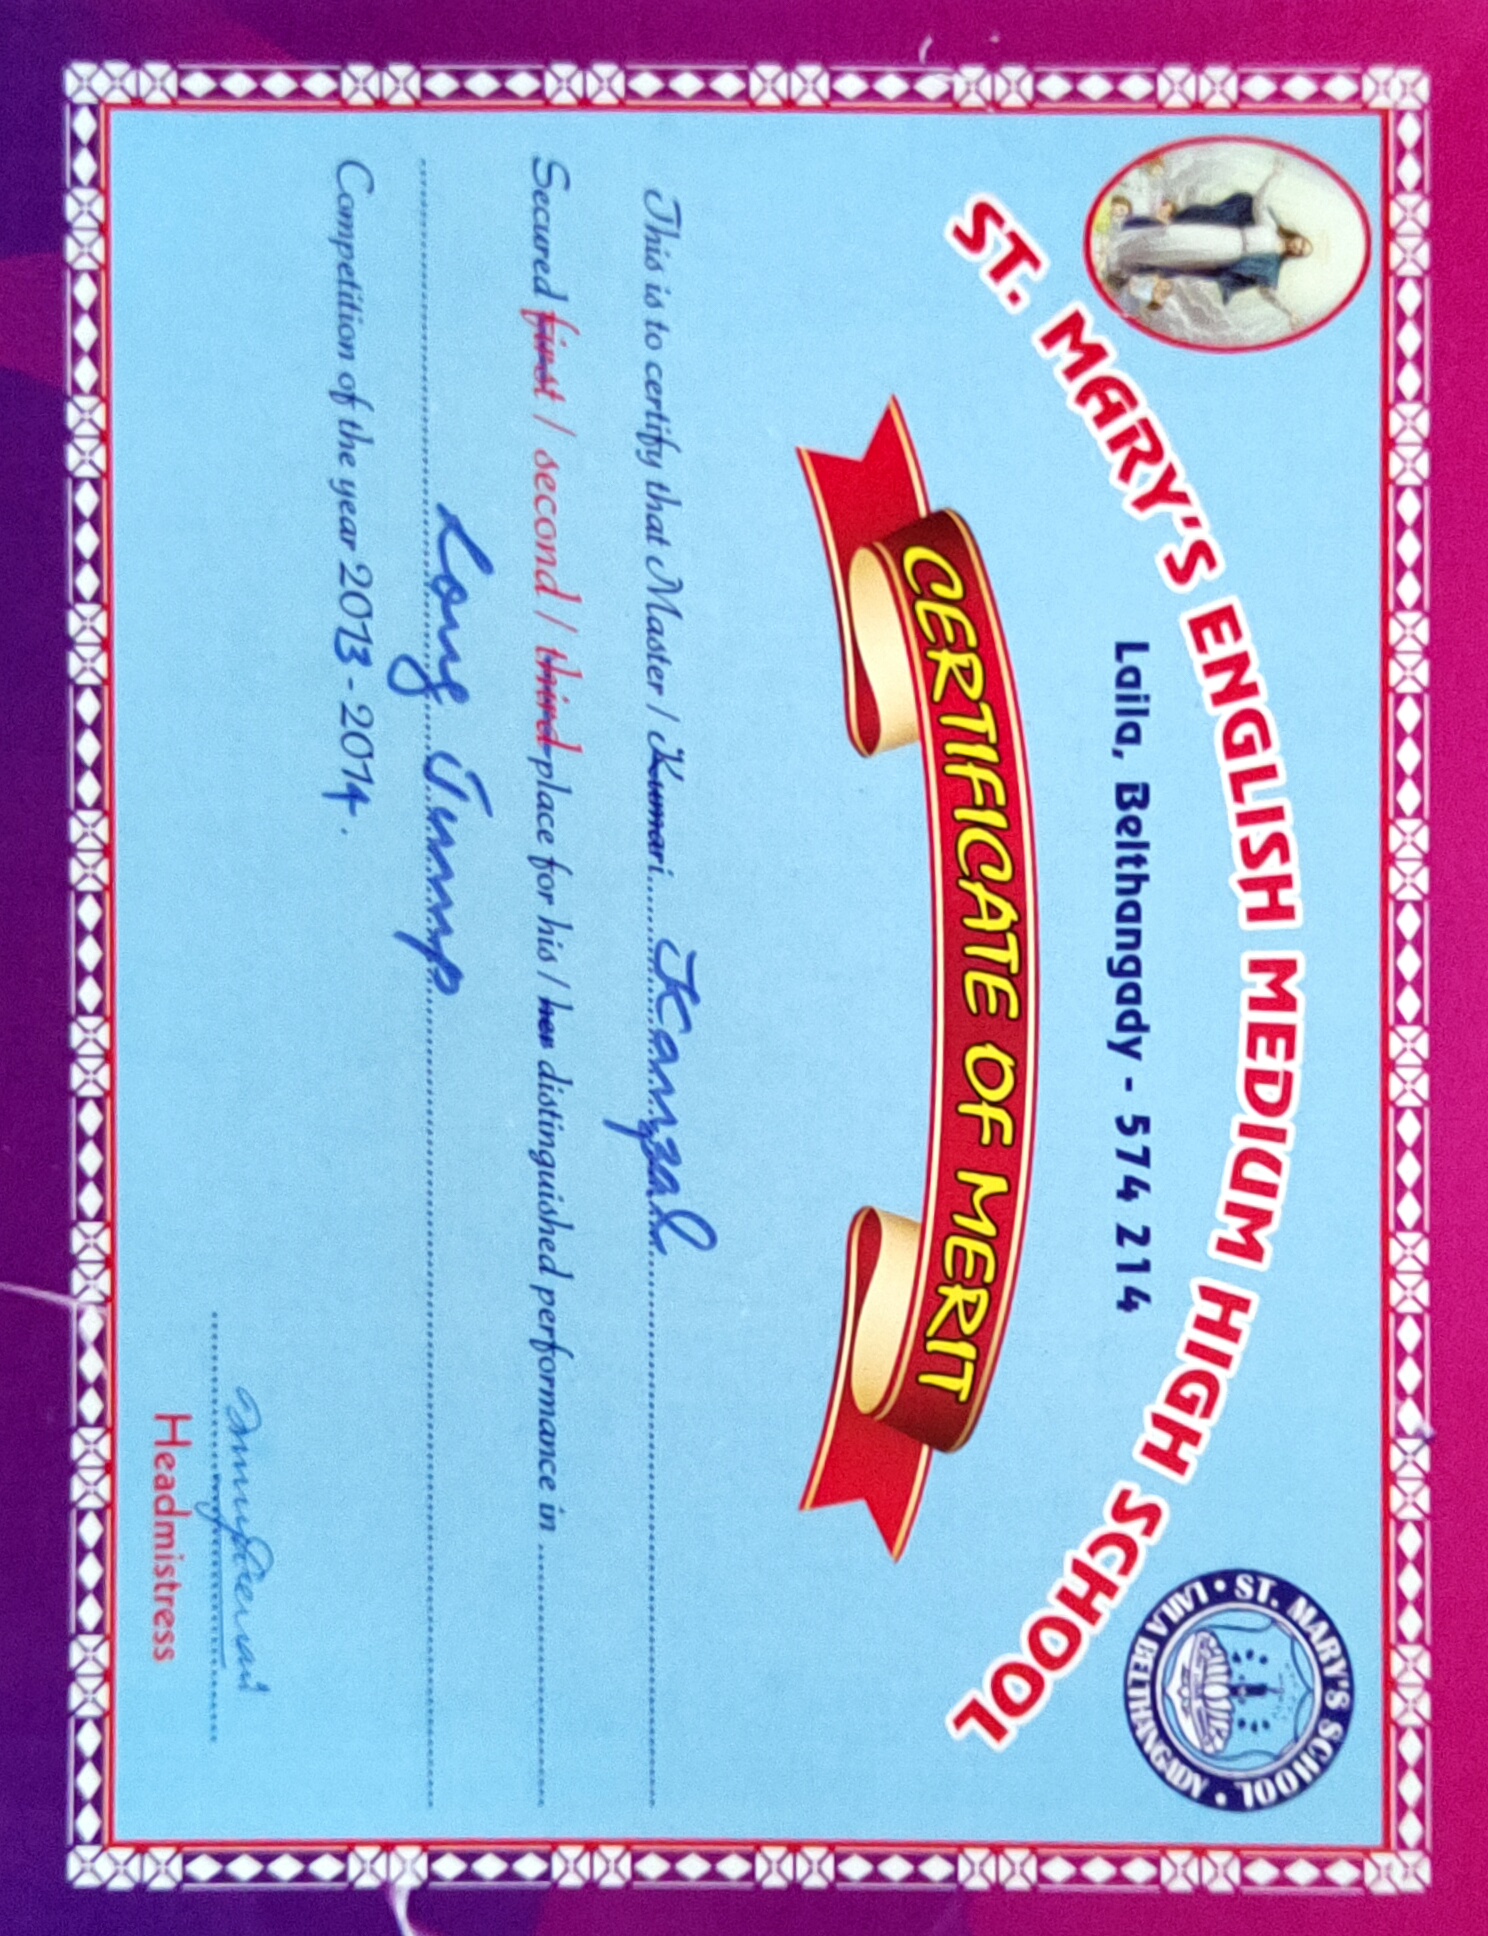 ST. MARY'S ENGLISH MEDIUM HIGH SCHOOL
Laila, Belthangady - 574 214
ST. MARY'S SCHOOL
LAILA BELTHANGADY
CERTIFICATE OF MERIT
This is to certify that Master / Kumari Kanzal
Secured first / second / third place for his / her distinguished performance in
Long Jump
Competition of the year 2013 - 2014.
Headmistress